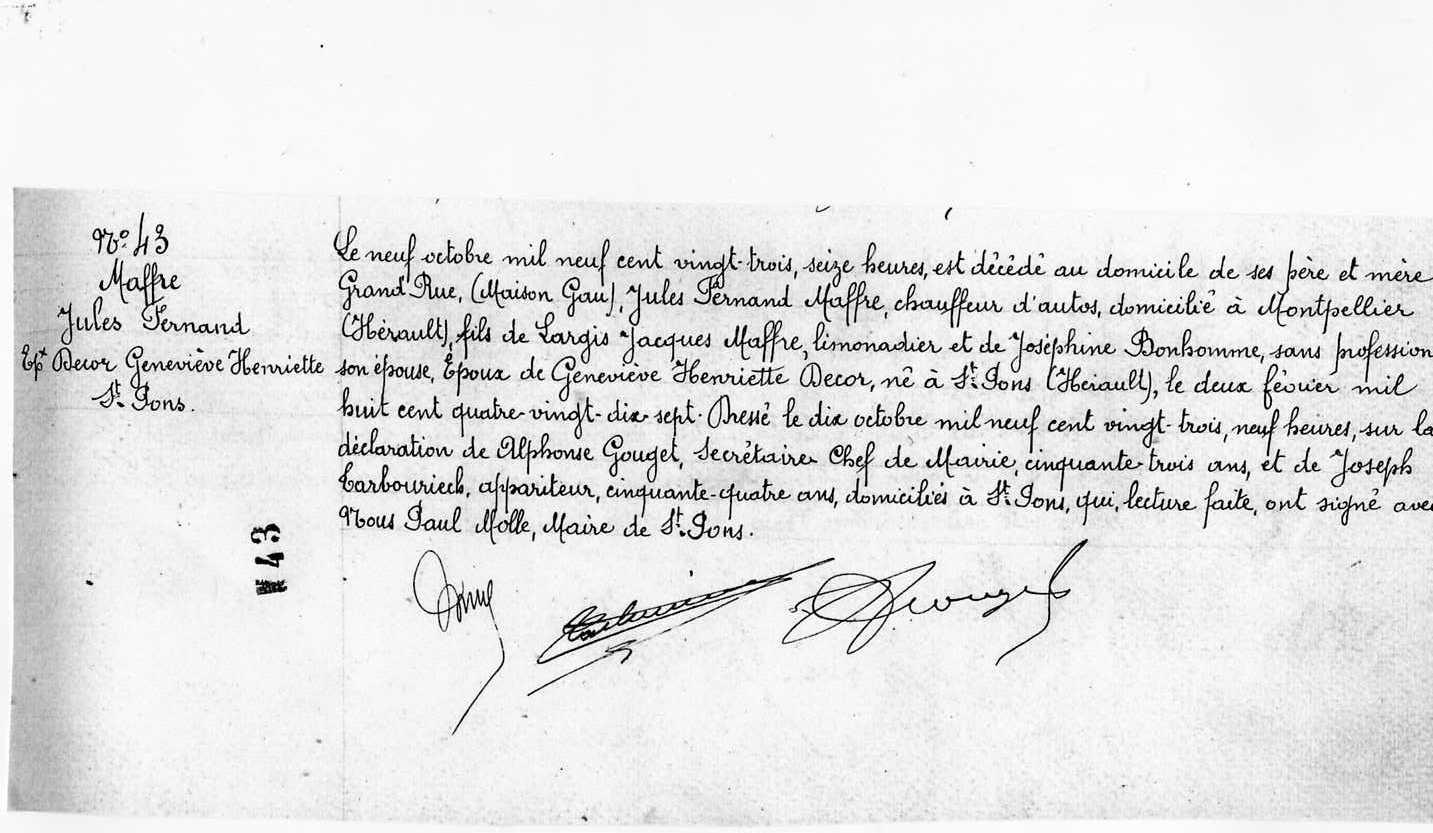 No. 43
Maffre
Jules Fernand
Epx Decor Geneviève Henriette
St. Pons.
Le neuf octobre mil neuf cent vingt-trois, seize heures, est décédé au domicile de ses père et mère
Grand'Rue, (Maison Gau), Jules Fernand Maffre, chauffeur d'autos, domicilié à Montpellier
(Hérault), fils de Largis Jacques Maffre, limonadier et de Joséphine Bonhomme, sans profession
son épouse, Epoux de Geneviève Henriette Decor, né à St. Pons (Hérault), le deux février mil
huit cent quatre-vingt-dix-sept. Dressé le dix octobre mil neuf cent vingt-trois, neuf heures, sur la
déclaration de Alphonse Gouget, Secrétaire Chef de Mairie, cinquante-trois ans, et de Joseph
Tarbouriech, appariteur, cinquante-quatre ans, domiciliés à St. Pons, qui, lecture faite, ont signé avec
Nous Paul Molle, Maire de St. Pons.
43
Gouget